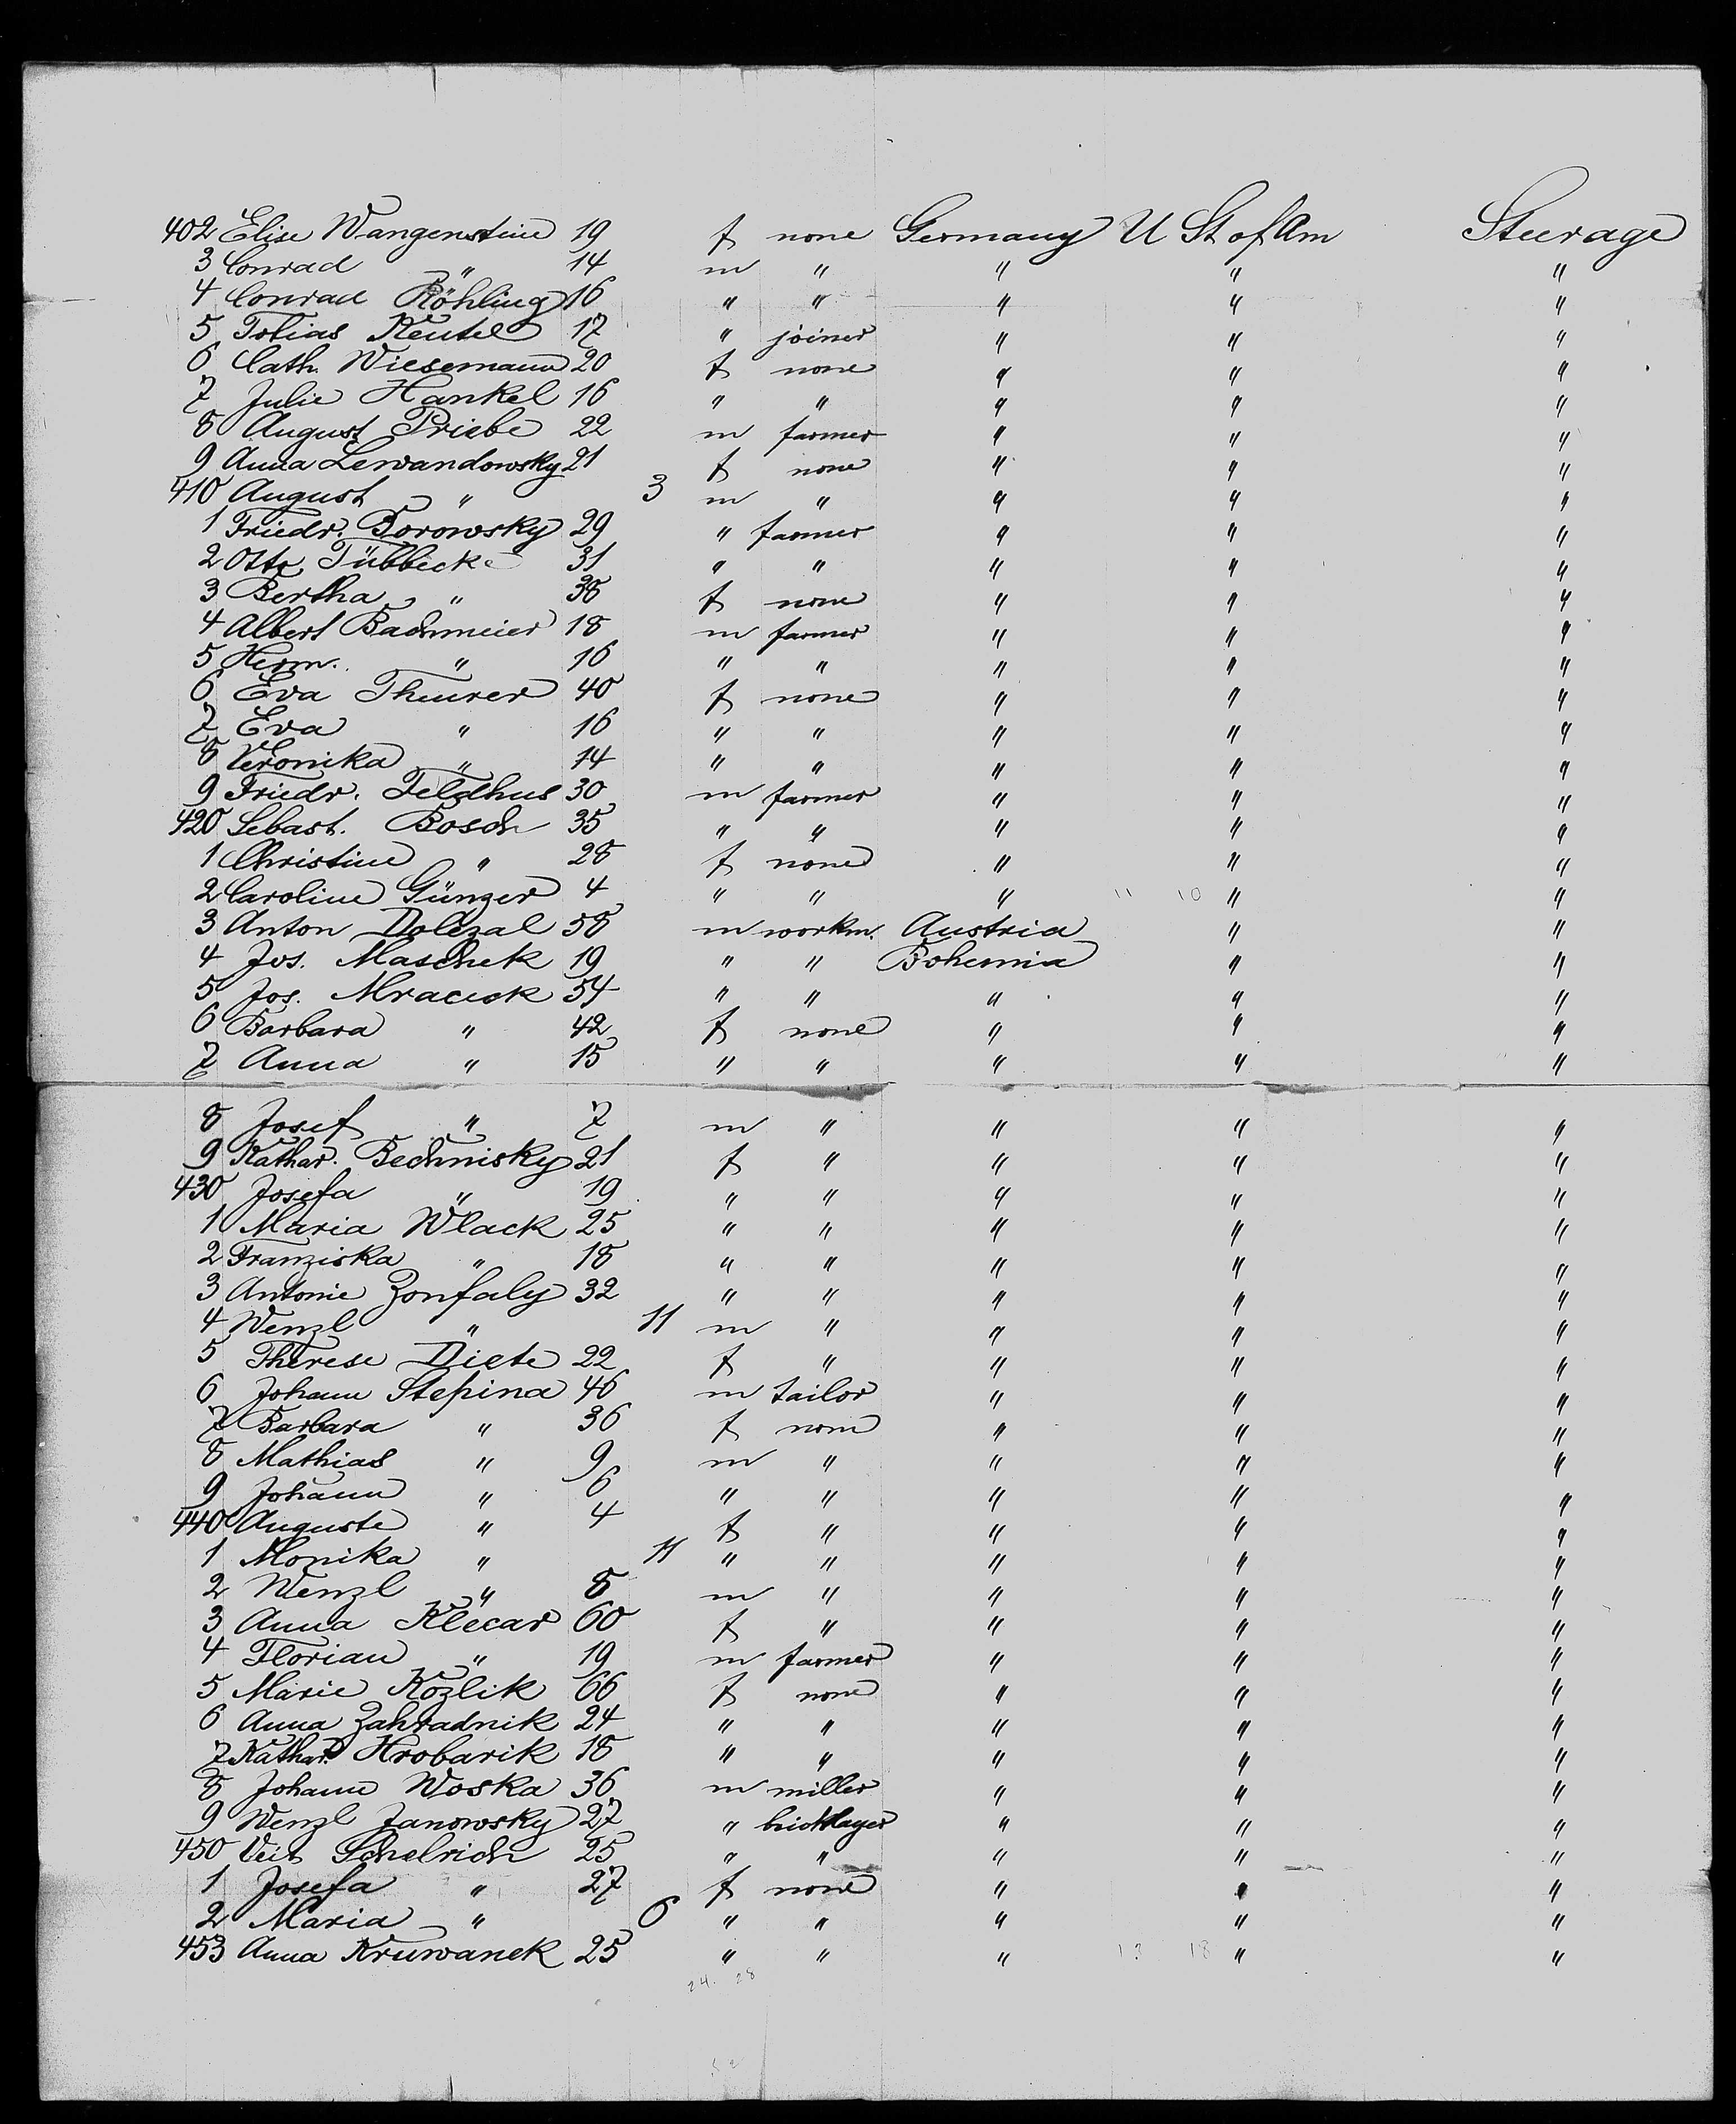 402 Elise Wangenstein 19 f none Germany U St of Am Steerage
3 Conrad " 14 m " " " "
4 Conrad Röhling 16 " " " " "
5 Tobias Keutel 17 " joiner " " "
6 Cath. Wiesemann 20 f none " " "
7 Julie Hankel 16 " " " " "
8 August Priebe 22 m farmer " " "
9 Anna Lewandowsky 21 f none " " "
410 August " 3 m " " " "
1 Friedr. Borowsky 29 " farmer " " "
2 Otto Tübbecke 31 " " " " "
3 Bertha " 38 f none " " "
4 Albert Bachmeier 18 m farmer " " "
5 Herm. " 16 " " " " "
6 Eva Theurer 40 f none " " "
7 Eva " 16 " " " " "
8 Veronika " 14 " " " " "
9 Friedr. Feldhus 30 m farmer " " "
420 Sebast. Bosch 35 " " " " "
1 Christine " 28 f none " " "
2 Caroline Günzer 4 " " " 11 10 " "
3 Anton Dolezal 58 m workm. Austria " "
4 Jos. Maschek 19 " " Bohemia " "
5 Jos. Mracek 54 " " " " "
6 Barbara " 42 f none " " "
7 Anna " 15 " " " " "
8 Josef " 7 m " " " "
9 Kathar. Bechnisky 21 f " " " "
430 Josefa " 19 " " " " "
1 Maria Wlack 25 " " " " "
2 Franziska " 18 " " " " "
3 Antonie Zonfaly 32 " " " " "
4 Wenzl " 11 m " " " "
5 Therese Diete 22 f " " " "
6 Johann Stepina 46 m tailor " " "
7 Barbara " 36 f none " " "
8 Mathias " 9 m " " " "
9 Johann " 6 " " " " "
440 Auguste " 4 f " " " "
1 Monika " 11 " " " " "
2 Wenzl " 8 m " " " "
3 Anna Klecar 60 f " " " "
4 Florian " 19 m farmer " " "
5 Marie Kozlik 66 f none " " "
6 Anna Zahradnik 24 " " " " "
7 Kathar. Hrobarik 18 " " " " "
8 Johann Woska 36 m miller " " "
9 Wenzl Janowsky 27 " bricklayer " " "
450 Veit Schelrich 25 " " " " "
1 Josefa " 27 f none " " "
2 Maria " 6 " " " " "
453 Anna Kruwanek 25 " " " 13 18 " "
24. 28